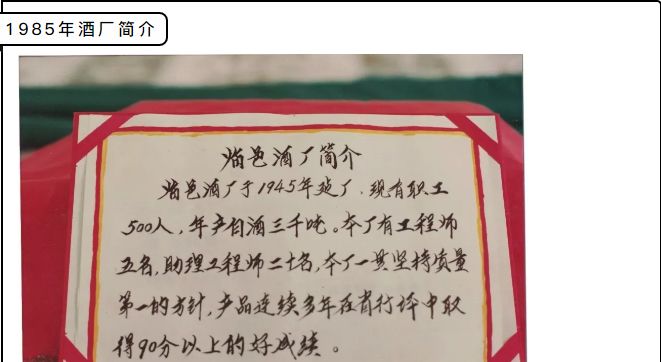 1985年酒厂简介
临邑酒厂简介
临邑酒厂于1945年建厂.现有职工
500人,年产白酒三千吨。本厂有工程师
五名,助理工程师二十名,本厂一贯坚持质量
第一的方针,产品连续多年在省行评中取
得90分以上的好成绩。